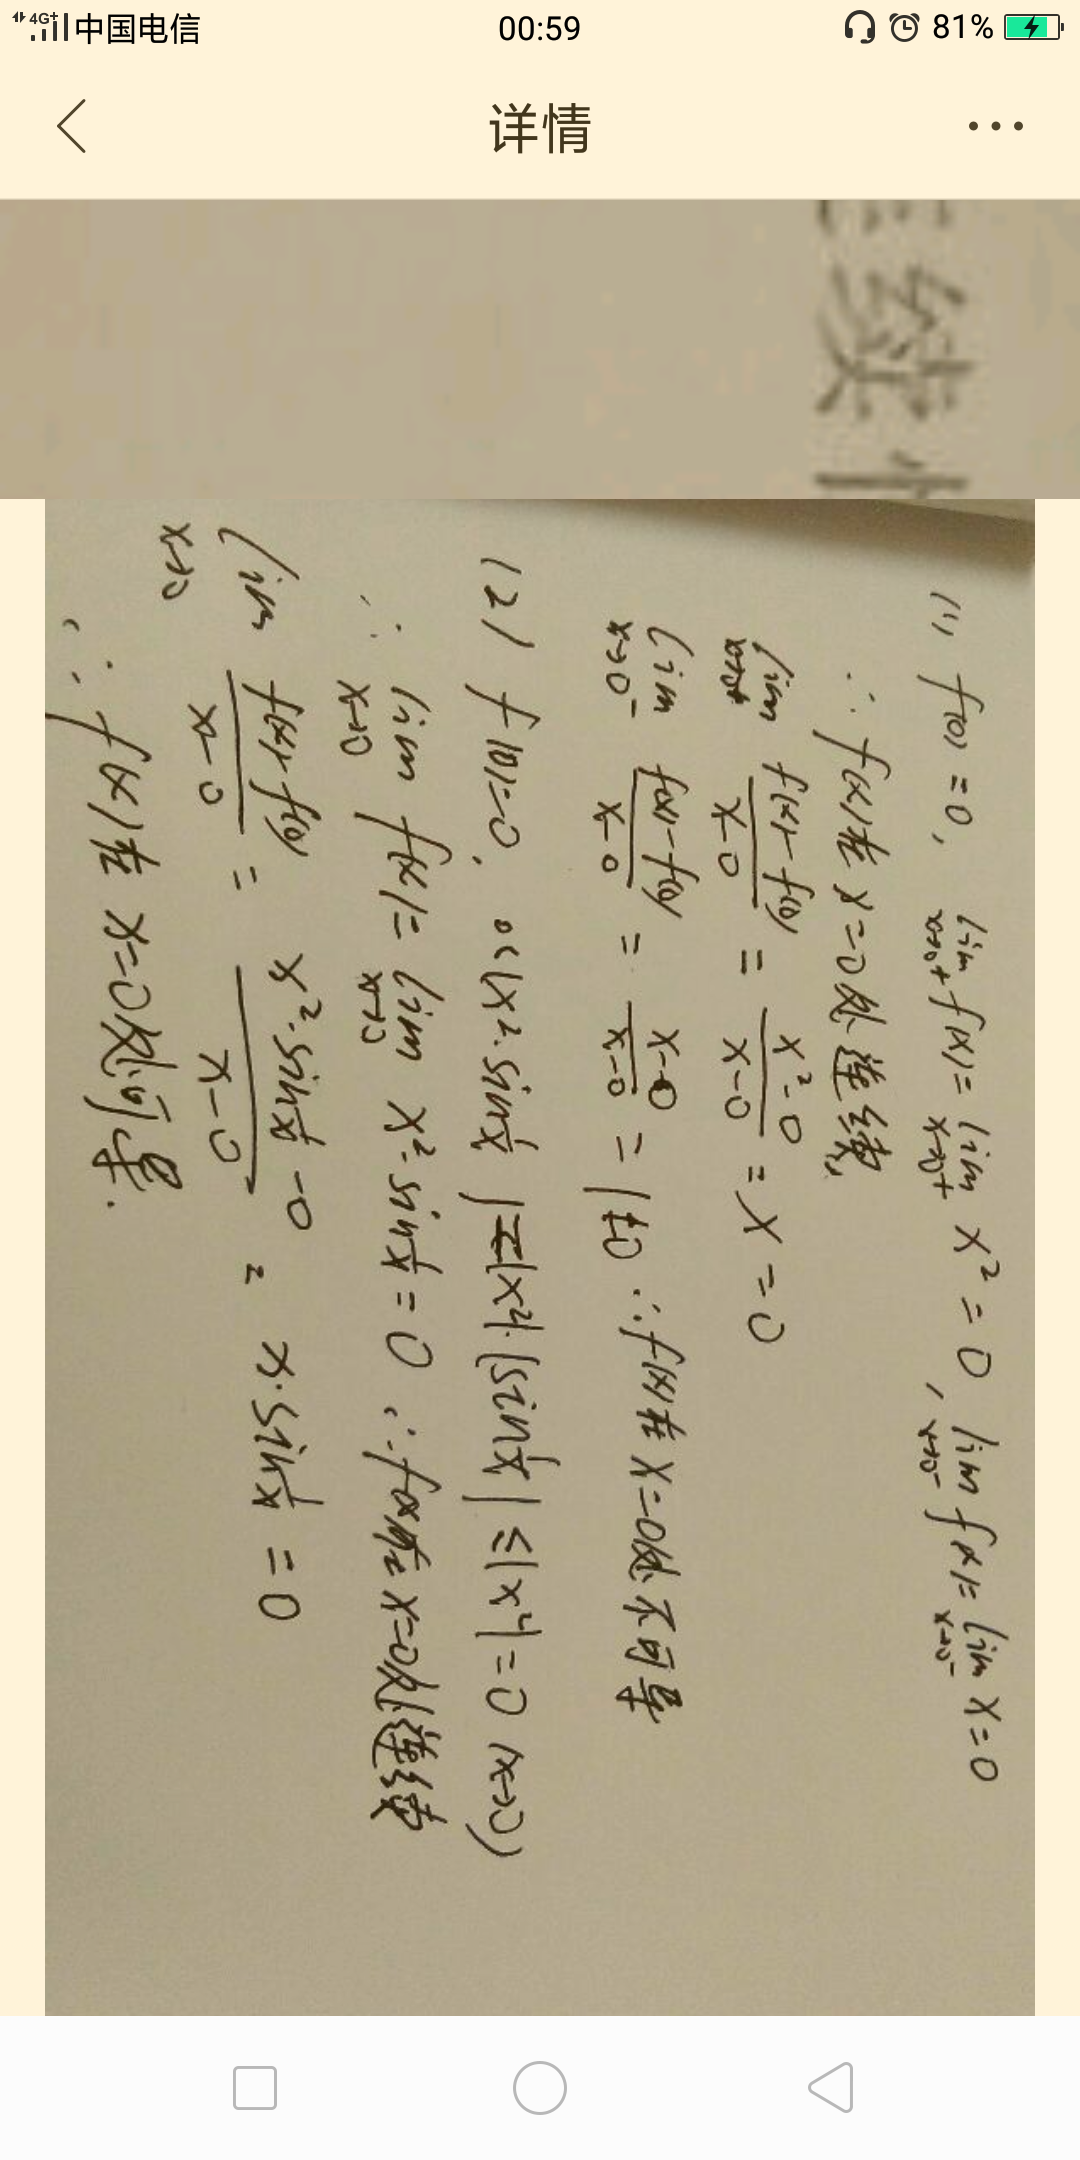 4G+ 中国电信 00:59 81%
详情
连续性
(1) f(0)=0, lim x→0+ f(x)= lim x→0+ x² = 0, lim x→0- f(x)= lim x→0- x=0
∴ f(x)在x=0处连续
lim x→0+ f(x)-f(0)/x-0 = x²-0/x-0 = x = 0
lim x→0- f(x)-f(0)/x-0 = x-0/x-0 = 1≠0 ∴f(x)在x=0处不可导
(2) f(0)=0, 0<|x²·sin1/x|=|x²|·|sin1/x| ≤|x²|=0 (x→0)
∴ lim x→0 f(x)= lim x→0 x²·sin1/x = 0 ∴f(x)在x=0处连续
lim x→0 f(x)-f(0)/x-0 = x²·sin1/x-0/x-0 = x·sin1/x = 0
∴ f(x)在x=0处可导.